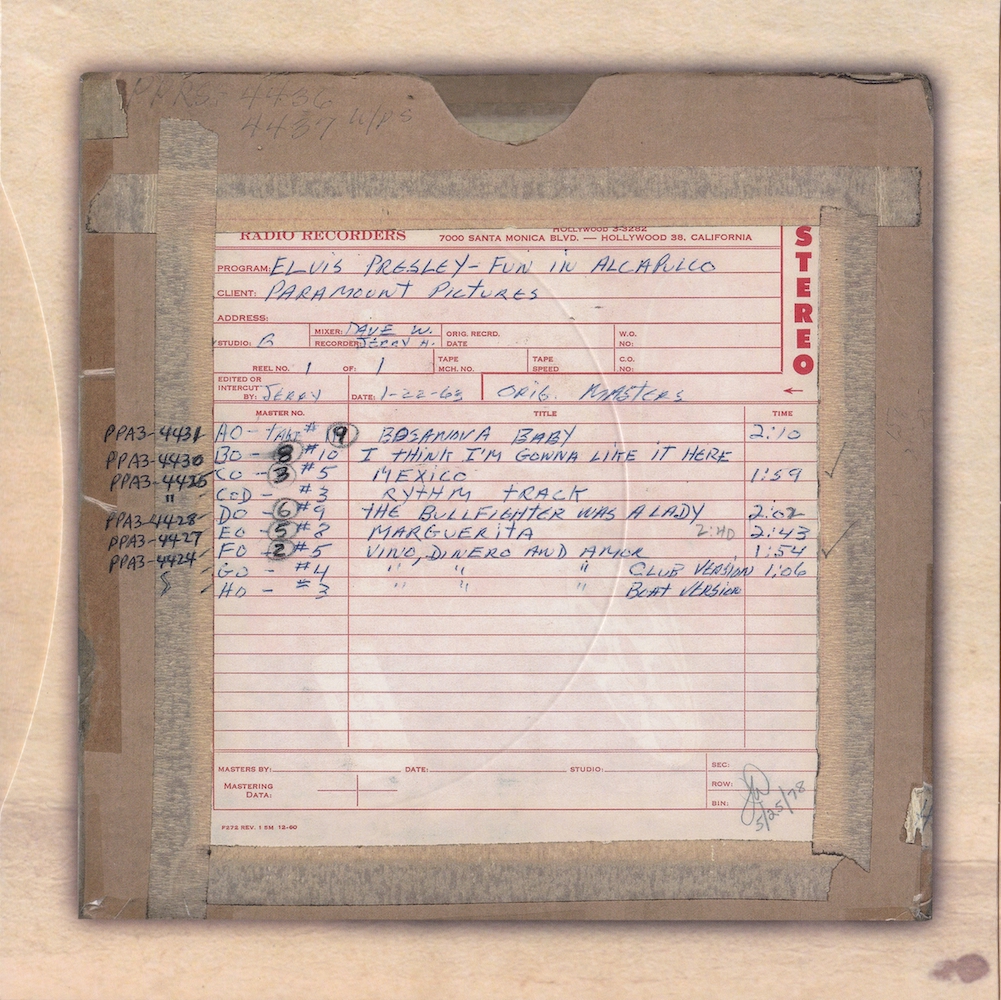 PPRS. 4436
4437 W/PS
HOLLYWOOD 3-3282
RADIO RECORDERS 7000 SANTA MONICA BLVD. — HOLLYWOOD 38, CALIFORNIA
STEREO
PROGRAM: ELVIS PRESLEY - FUN IN ALCAPULCO
CLIENT: PARAMOUNT PICTURES
ADDRESS:
STUDIO: B MIXER: DAVE W. RECORDER JERRY H. ORIG. RECRD. DATE W.O. NO:
REEL NO. 1 OF: 1 TAPE MCH. NO. TAPE SPEED C.O. NO:
EDITED OR INTERCUT BY: JERRY DATE: 1-22-63 ORIG. MASTERS ←
MASTER NO. TITLE TIME
PPA3-4431 AO - TAKE # 9 BOSANOVA BABY 2:10
PPA3-4430 BO - 8 #10 I THINK I'M GONNA LIKE IT HERE
PPA3-4425 CO - 3 #5 MEXICO 1:59 ✓
" COD - #3 RYTHM TRACK
PPA3-4428 DO - 6 #9 THE BULLFIGHTER WAS A LADY 2:02
PPA3-4427 EO - 5 #8 MARGUERITA 2:40 2:43
PPA3-4424 FO - 2 #5 VINO, DINERO AND AMOR 1:54 ✓
GO - #4 " " " CLUB VERSION 1:06
HO - # 3 " " " BOAT VERSION
MASTERS BY: DATE: STUDIO: SEC:
MASTERING DATA: ROW:
BIN:
5/25/78
P272 REV. 1 5M 12-60